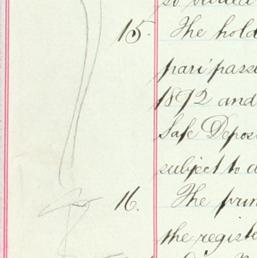 15. The hold
pari passu
1892 and
Safe Depos
subject to a
16. The prin
the registe